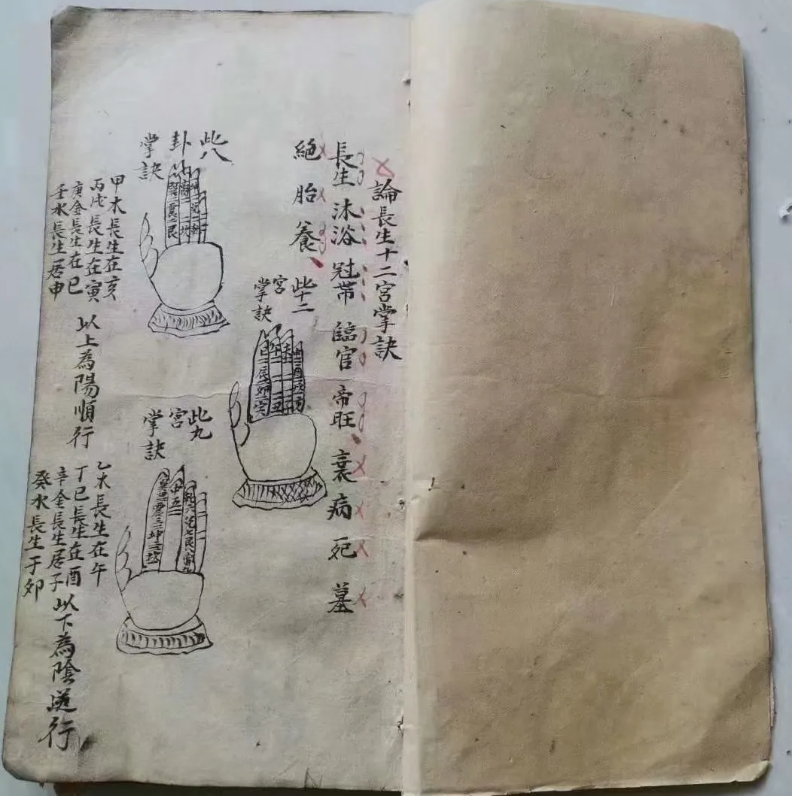 論長生十二宮掌訣
長生沐浴冠帶臨官帝旺衰病死墓
絕胎養
此十二
宮
掌訣
此八
卦
掌訣
甲木長生在亥
丙戊長生在寅
庚金長生在巳
壬水長生居申
以上為陽順行
此九
宮
掌訣
乙木長生在午
丁己長生在酉
辛金長生居子
癸水長生于卯
以下為陰逆行